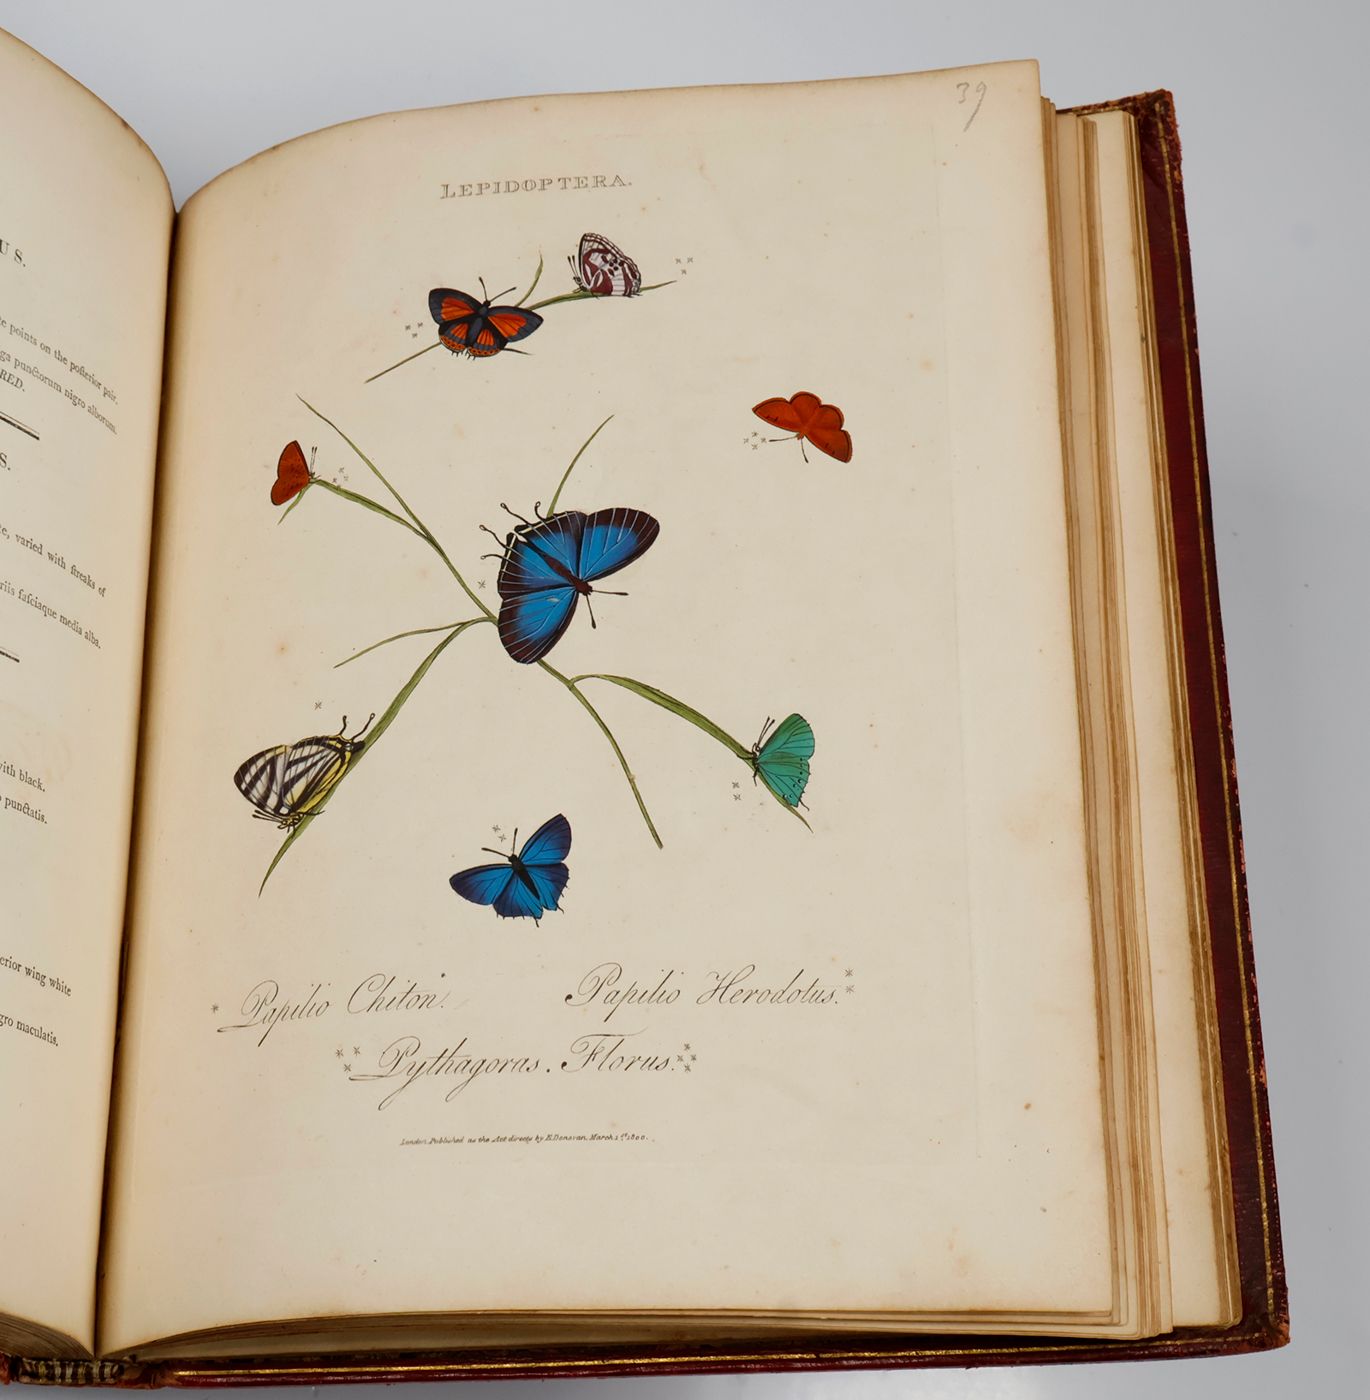 US.
te points on the poſterior pair.
ga punctorum nigro alborum.
RED.
S.
te, varied with ſtreaks of
riis faſciaque media alba.
with black.
o punctatis.
erior wing white
gro maculatis.
39
LEPIDOPTERA.
* Papilio Chiton.
Papilio Herodotus. **
*** Pythagoras. Florus. ****
London. Published as the Act directs by E. Donovan. March 1st 1800.